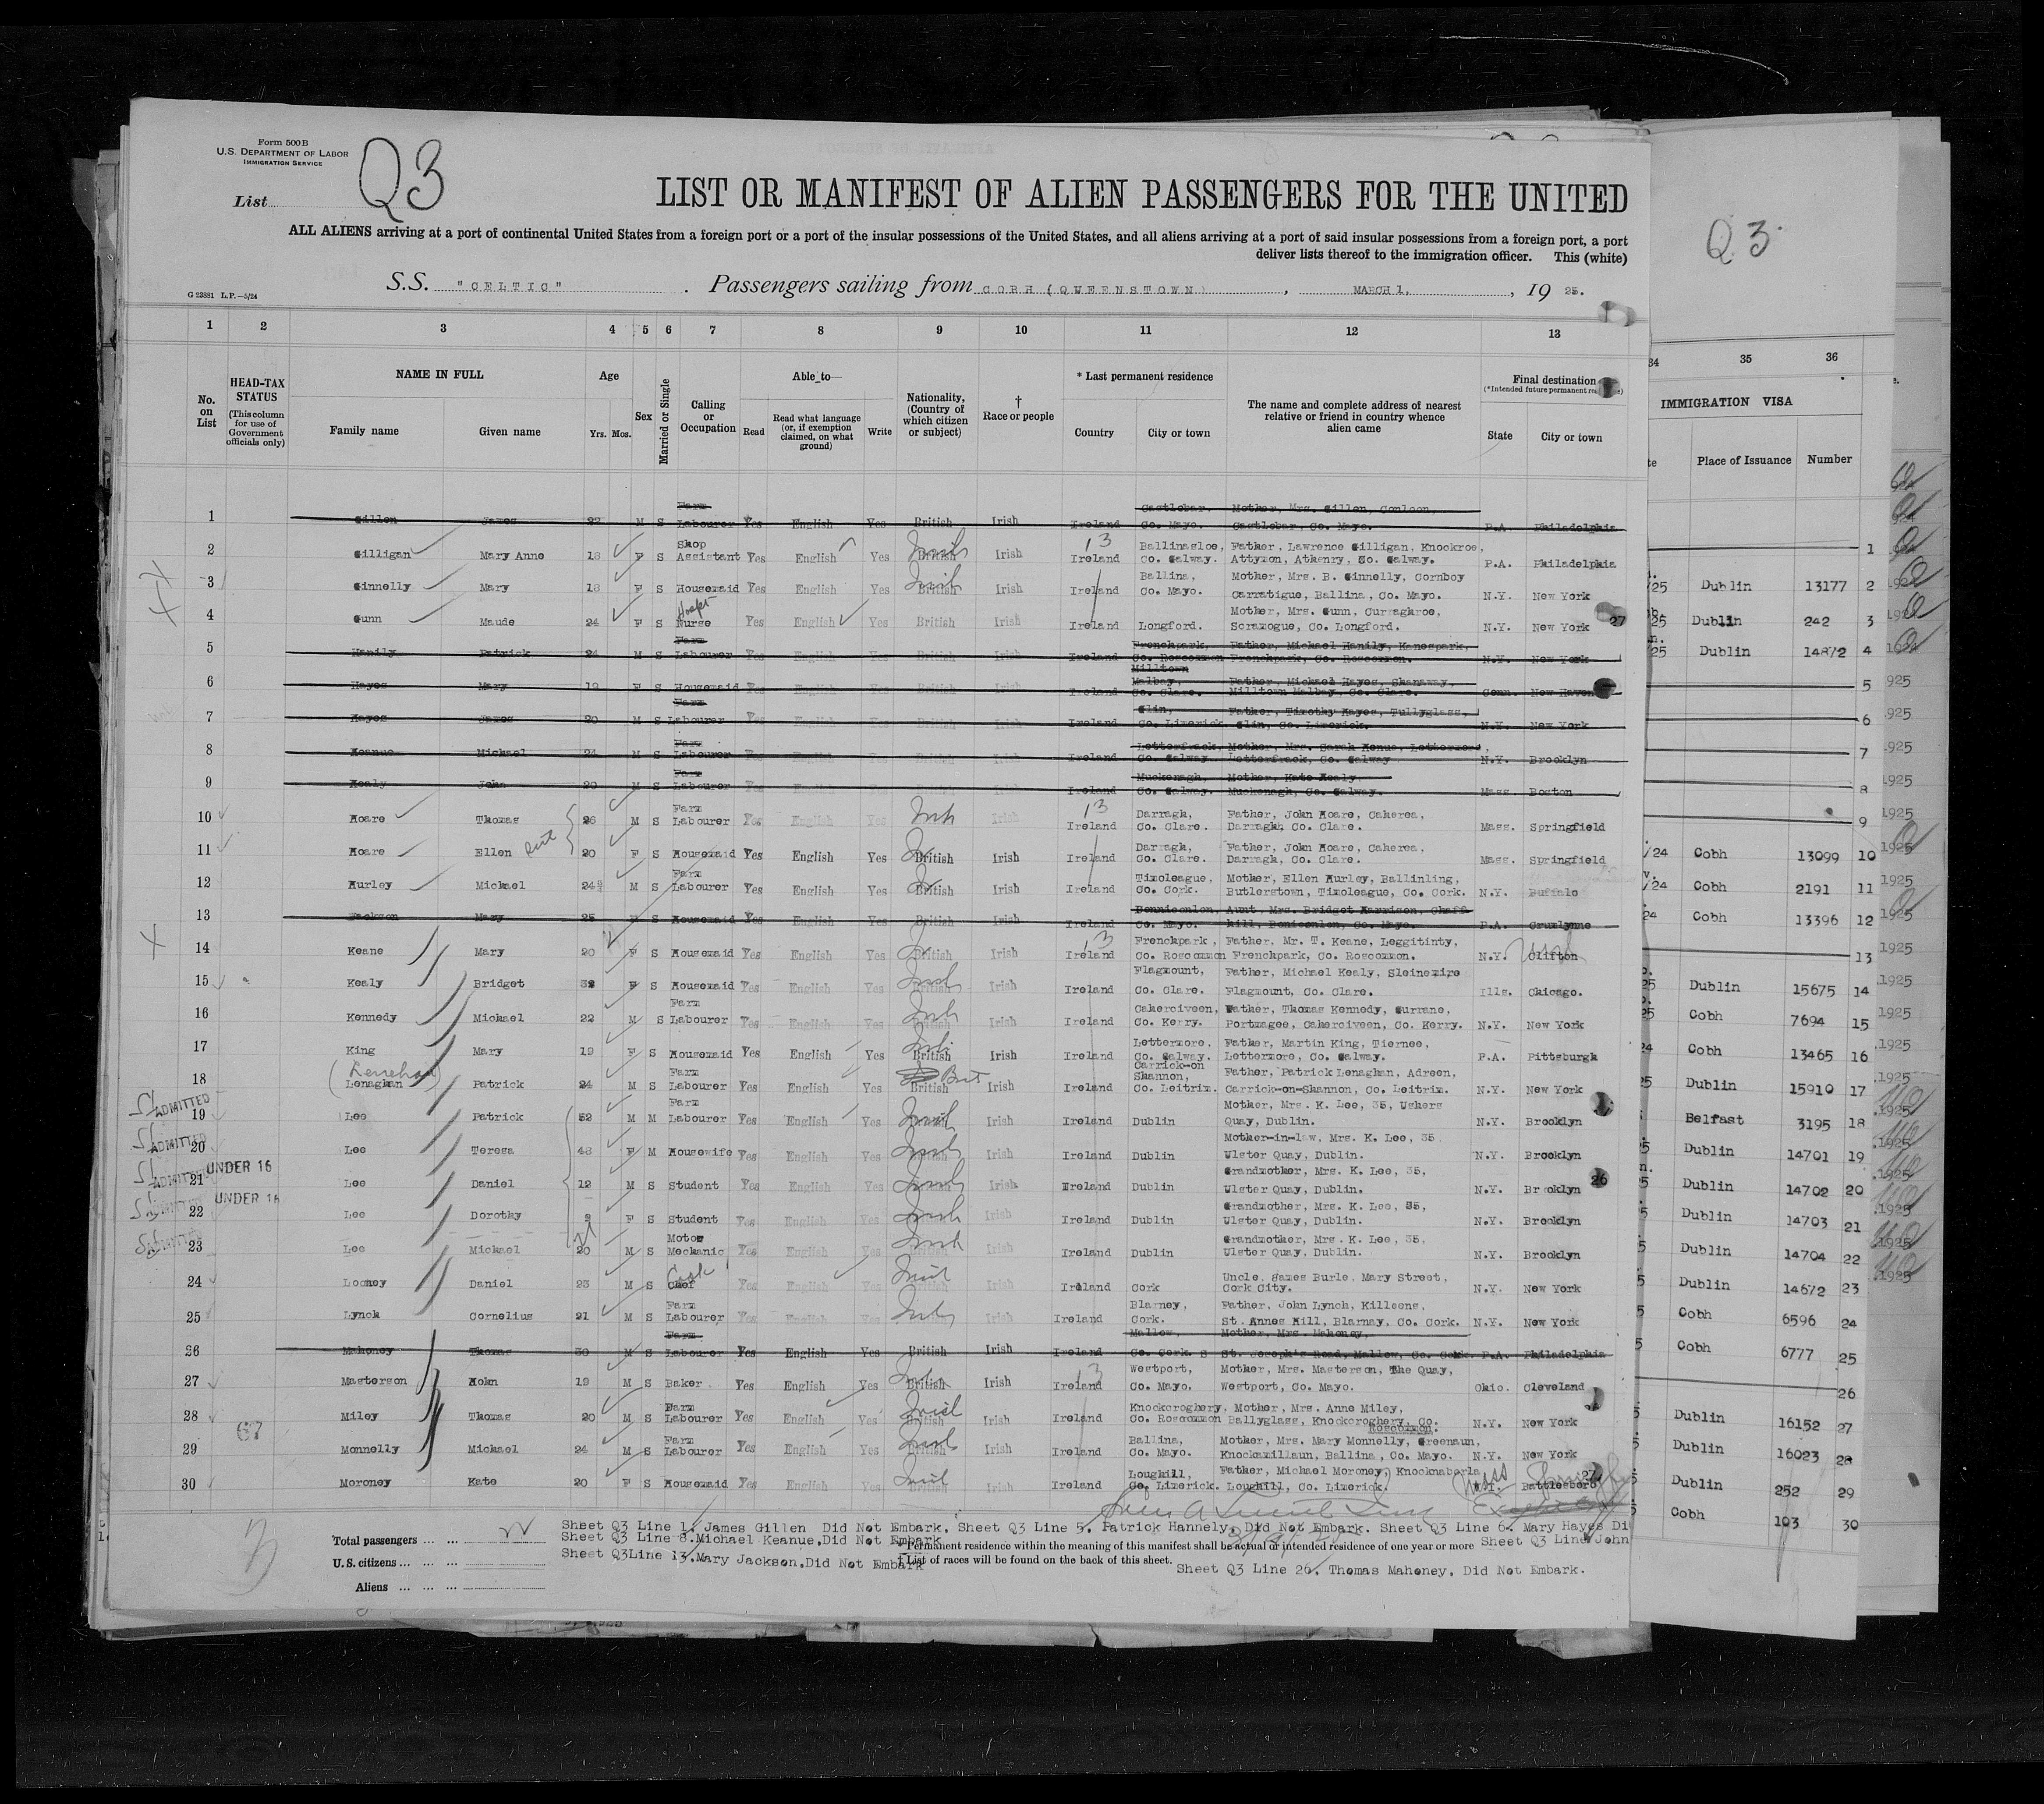 Form 500 B
U.S. DEPARTMENT OF LABOR
IMMIGRATION SERVICE
List Q3
LIST OR MANIFEST OF ALIEN PASSENGERS FOR THE UNITED
ALL ALIENS arriving at a port of continental United States from a foreign port or a port of the insular possessions of the United States, and all aliens arriving at a port of said insular possessions from a foreign port, a port
deliver lists thereof to the immigration officer. This (white)
S.S. "CELTIC" . Passengers sailing from COBH (QUEENSTOWN) , MARCH 1, , 19 25.
G 23881 L.P.—5/24
Q3.
1 2 3 4 5 6 7 8 9 10 11 12 13
34 35 36
No. on List
HEAD-TAX STATUS (This column for use of Government officials only)
NAME IN FULL
Family name Given name
Age
Yrs. Mos.
Sex
Married or Single
Calling or Occupation
Able to—
Read
Read what language (or, if exemption claimed, on what ground)
Write
Nationality, (Country of which citizen or subject)
† Race or people
* Last permanent residence
Country City or town
The name and complete address of nearest relative or friend in country whence alien came
Final destination
State City or town
IMMIGRATION VISA
Place of Issuance Number
1 Gillen James 22 M S Farm Labourer Yes English Yes British Irish Ireland Castlebar, Co. Mayo. Mother, Mrs. Gillen, Conloon, Castlebar, Co. Mayo. P.A. Philadelphia
2 Gilligan Mary Anne 18 F S Shop Assistant Yes English Yes British Irish Ireland Ballinasloe, Co. Galway. Father, Lawrence Gilligan, Knockroe, Attymon, Athenry, Co. Galway. P.A. Philadelphia
3 Ginnelly Mary 18 F S Housemaid Yes English Yes British Irish Ireland Ballina, Co. Mayo. Mother, Mrs. B. Ginnelly, Cornboy Carratigue, Ballina, Co. Mayo. N.Y. New York
4 Gunn Maude 24 F S Nurse Yes English Yes British Irish Ireland Longford. Mother, Mrs. Gunn, Curraghroe, Scramogue, Co. Longford. N.Y. New York
5 Hanily Patrick 24 M S Farm Labourer Yes English Yes British Irish Ireland Frenchpark, Co. Roscommon Father, Michael Hanily, Kanespark, Frenchpark, Co. Roscommon. N.Y. New York
6 Hayes Mary 19 F S Housemaid Yes English Yes British Irish Ireland Milltown Malbay, Co. Clare. Father, Michael Hayes, Shanaway, Milltown Malbay, Co. Clare. Conn. New Haven
7 Hayes James 20 M S Farm Labourer Yes English Yes British Irish Ireland Glin, Co. Limerick Father, Timothy Hayes, Tullyglass, Glin, Co. Limerick. N.Y. New York
8 Heanue Michael 24 M S Farm Labourer Yes English Yes British Irish Ireland Letterfrack, Co. Galway. Mother, Mrs. Sarah Henue, Letterfrack, Co. Galway N.Y. Brooklyn
9 Healy John 20 M S Farm Labourer Yes English Yes British Irish Ireland Muckenagh, Co. Galway. Mother, Kate Healy. Muckenagh, Co. Galway. Mass. Boston
10 Hoare Thomas 26 M S Farm Labourer Yes English Yes Irish Irish Ireland Darragh, Co. Clare. Father, John Hoare, Caherea, Darragh, Co. Clare. Mass. Springfield
11 Hoare Ellen 20 F S Housemaid Yes English Yes British Irish Ireland Darragh, Co. Clare. Father, John Hoare, Caherea, Darragh, Co. Clare. Mass. Springfield
12 Hurley Michael 24 M S Farm Labourer Yes English Yes British Irish Ireland Timoleague, Co. Cork. Mother, Ellen Hurley, Ballinling, Butlerstown, Timoleague, Co. Cork. N.Y. Buffalo
13 Jackson Mary 25 F S Housemaid Yes English Yes British Irish Ireland Bonniconlon, Co. Mayo. Aunt, Mrs. Bridget Harrison, Chaff Hill, Boniconlon, Co. Mayo. P.A. Crumlynne
14 Keane Mary 20 F S Housemaid Yes English Yes British Irish Ireland Frenchpark, Co. Roscommon Father, Mr. T. Keane, Leggitinty, Frenchpark, Co. Roscommon. N.Y. Clifton
15 Kealy Bridget F S Housemaid Yes English Yes British Irish Ireland Flagmount, Co. Clare. Father, Michael Kealy, Sleinemire Flagmount, Co. Clare. Ills. Chicago.
16 Kennedy Michael 22 M S Farm Labourer Yes English Yes British Irish Ireland Caherciveen, Co. Kerry. Father, Thomas Kennedy, Currane, Portmagee, Caherciveen, Co. Kerry. N.Y. New York
17 King Mary 19 F S Housemaid Yes English Yes British Irish Ireland Lettermore, Co. Galway. Father, Martin King, Tiernee, Lettermore, Co. Galway. P.A. Pittsburgh
(Lenehan)
18 Lenaghan Patrick 24 M S Farm Labourer Yes English Yes British Irish Ireland Carrick-on Shannon, Co. Leitrim. Father, Patrick Lenaghan, Adreen, Carrick-on-Shannon, Co. Leitrim. N.Y. New York
ADMITTED 19 Lee Patrick 52 M M Farm Labourer Yes English Yes Irish Ireland Dublin Mother, Mrs. K. Lee, 35, Ushers Quay, Dublin. N.Y. Brooklyn
ADMITTED 20 Lee Teresa 48 F M Housewife Yes English Yes British Irish Ireland Dublin Mother-in-law, Mrs. K. Lee, 35 Ulster Quay, Dublin. N.Y. Brooklyn
ADMITTED UNDER 16 21 Lee Daniel 12 M S Student Yes English Yes British Irish Ireland Dublin Grandmother, Mrs. K. Lee, 35, Ulster Quay, Dublin. N.Y. Brooklyn
UNDER 16 22 Lee Dorothy F S Student Yes English Yes Irish Ireland Dublin Grandmother, Mrs. K. Lee, 35, Ulster Quay, Dublin. N.Y. Brooklyn
ADMITTED 23 Lee Michael 20 M S Motor Mechanic Yes English Yes British Irish Ireland Dublin Grandmother, Mrs. K. Lee, 35, Ulster Quay, Dublin. N.Y. Brooklyn
24 Looney Daniel 23 M S Chef Cook Yes English Yes Irish Irish Ireland Cork Uncle, James Burle, Mary Street, Cork City. N.Y. New York
25 Lynch Cornelius 21 M S Farm Labourer Yes English Yes Irish Irish Ireland Blarney, Cork. Father, John Lynch, Killeens, St. Annes Hill, Blarnay, Co. Cork. N.Y. New York
26 Mahoney Thomas 30 M S Farm Labourer Yes English Yes British Irish Ireland Mallow, Co. Cork. Mother, Mrs. Mahoney, St. Joseph's Road, Mallow, Co. Cork. P.A. Philadelphia
27 Masterson John 19 M S Baker Yes English Yes British Irish Ireland Westport, Co. Mayo. Mother, Mrs. Masterson, The Quay, Westport, Co. Mayo. Ohio. Cleveland
28 Miley Thomas 20 M S Farm Labourer Yes English Yes British Irish Ireland Knockcroghery, Co. Roscommon Mother, Mrs. Anne Miley, Ballyglass, Knockcroghery, Co. Roscommon. N.Y. New York
67
29 Monnelly Michael 24 M S Farm Labourer Yes English Yes British Irish Ireland Ballina, Co. Mayo. Mother, Mrs. Mary Monnelly, Greenaun, Knockmillaun, Ballina, Co. Mayo. N.Y. New York
30 Moroney Kate 20 F S Housemaid Yes English Yes Irish Irish Ireland Loughill, Co. Limerick. Father, Michael Moroney, Knocknaborla Loughill, Co. Limerick. Mass Battlesboro
1
/25 Dublin 13177 2
/25 Dublin 242 3
/25 Dublin 14872 4
5
6
7
8
9
/24 Cobh 13099 10
/24 Cobh 2191 11
24 Cobh 13396 12
13
25 Dublin 15675 14
25 Cobh 7694 15
24 Cobh 13465 16
25 Dublin 15910 17
Belfast 3195 18
5 Dublin 14701 19
5 Dublin 14702 20
5 Dublin 14703 21
5 Dublin 14704 22
5 Dublin 14672 23
5 Cobh 6596 24
5 Cobh 6777 25
26
5 Dublin 16152 27
5 Dublin 16023 28
5 Dublin 252 29
5 Cobh 103 30
Total passengers
U.S. citizens
Aliens
Sheet Q3 Line 1. James Gillen Did Not Embark. Sheet Q3 Line 5. Patrick Hannely. Did Not Embark. Sheet Q3 Line 6. Mary Hayes Di
Sheet Q3 Line 8. Michael Keanue, Did Not Embark
* Permanent residence within the meaning of this manifest shall be actual or intended residence of one year or more Sheet Q3 Line John
Sheet Q3Line 13. Mary Jackson, Did Not Embark
† List of races will be found on the back of this sheet.
Sheet Q3 Line 26. Thomas Mahoney. Did Not Embark.